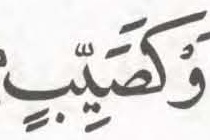 وَكَصَيِّبٍ